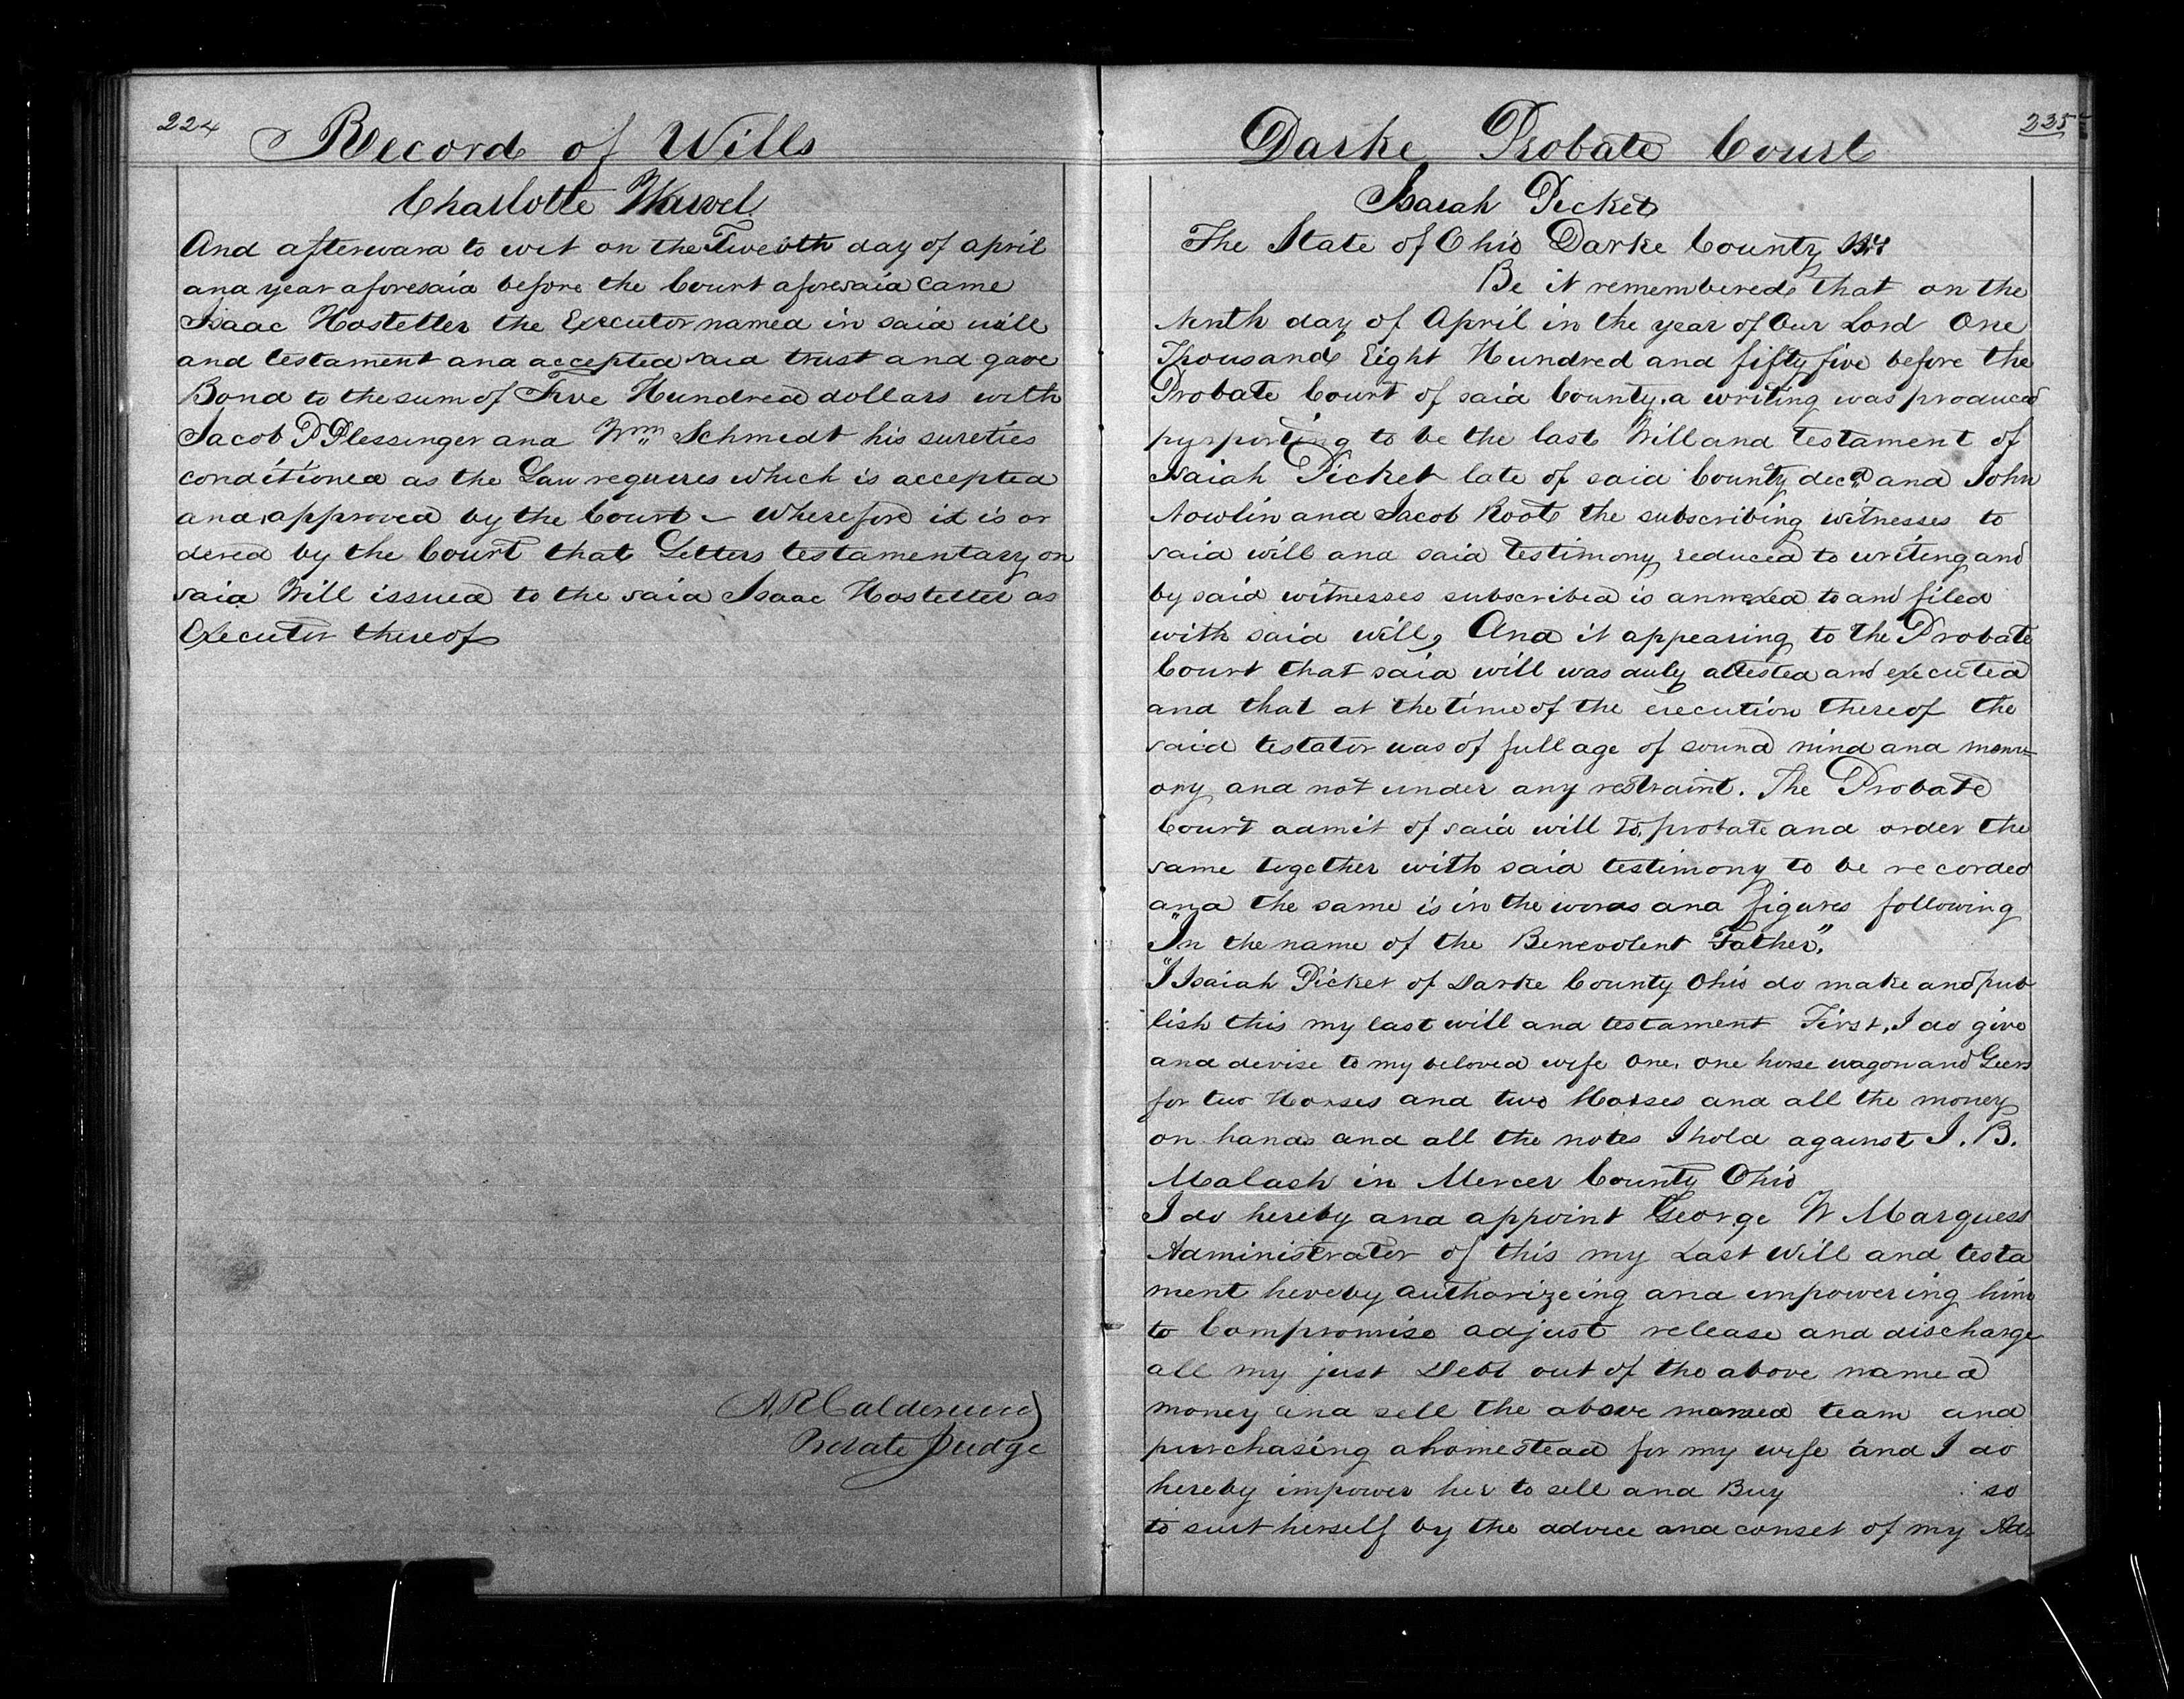 224
Record of Wills
Charlotte
And afterward to wit on the day of april
and year aforesaid before the Court aforesaid came
Isaac Hostetter the Executor named in said will
and testament and accepted said trust and gave
Bond to the sum of Five Hundred dollars with
Jacob P Plessinger and Wm Schmedt his sureties
conditioned as the Law requires which is accepted
and approved by the Court – Wherefore it is or
dered by the Court that Letters testamentary on
said Will issued to the said Isaac Hostetter as
Executor thereof
A R Calderwood
Probate Judge
225
Darke Probate Court
Isaiah Picket
The State of Ohio Darke County
Be it remembered that on the
Ninth day of April in the year of Our Lord One
Thousand Eight Hundred and fifty five before the
Probate Court of said County, a writing was produced
pyrporting to be the last Will and testament of
Isaiah Picket late of said County decd and John
Nowlin and Jacob Root the subscribing witnesses to
said will and said testimony reduced to writing and
by said witnesses subscribed is annexed to and filed
with said will, And it appearing to the Probate
Court that said will was duly attested and executed
and that at the time of the execution thereof the
said testator was of full age of sound mind and mem=
ory and not under any restraint. The Probate
Court admit of said will to probate and order the
same together with said testimony to be recorded
and the same is in the words and figures following
"In the name of the Benevolent Father".
"I Isaiah Picket of Darke County Ohio do make and pub
lish this my last will and testament First, I do give
and devise to my beloved wife one, one horse wagon and Geers
for two Horses and two Horses and all the money
on hands and all the notes I hold against I. B.
Malash in Mercer County Ohio
I do hereby and appoint George W Marquess
Administrator of this my Last Will and testa
ment hereby authorizeing and impowering him
to Compromise adjust release and discharge
all my just Debt out of the above named
money and sell the above named team and
purchasing a homestead for my wife and I do
hereby impower her to sell and Buy so
to suit herself by the advice and conset of my Ad=